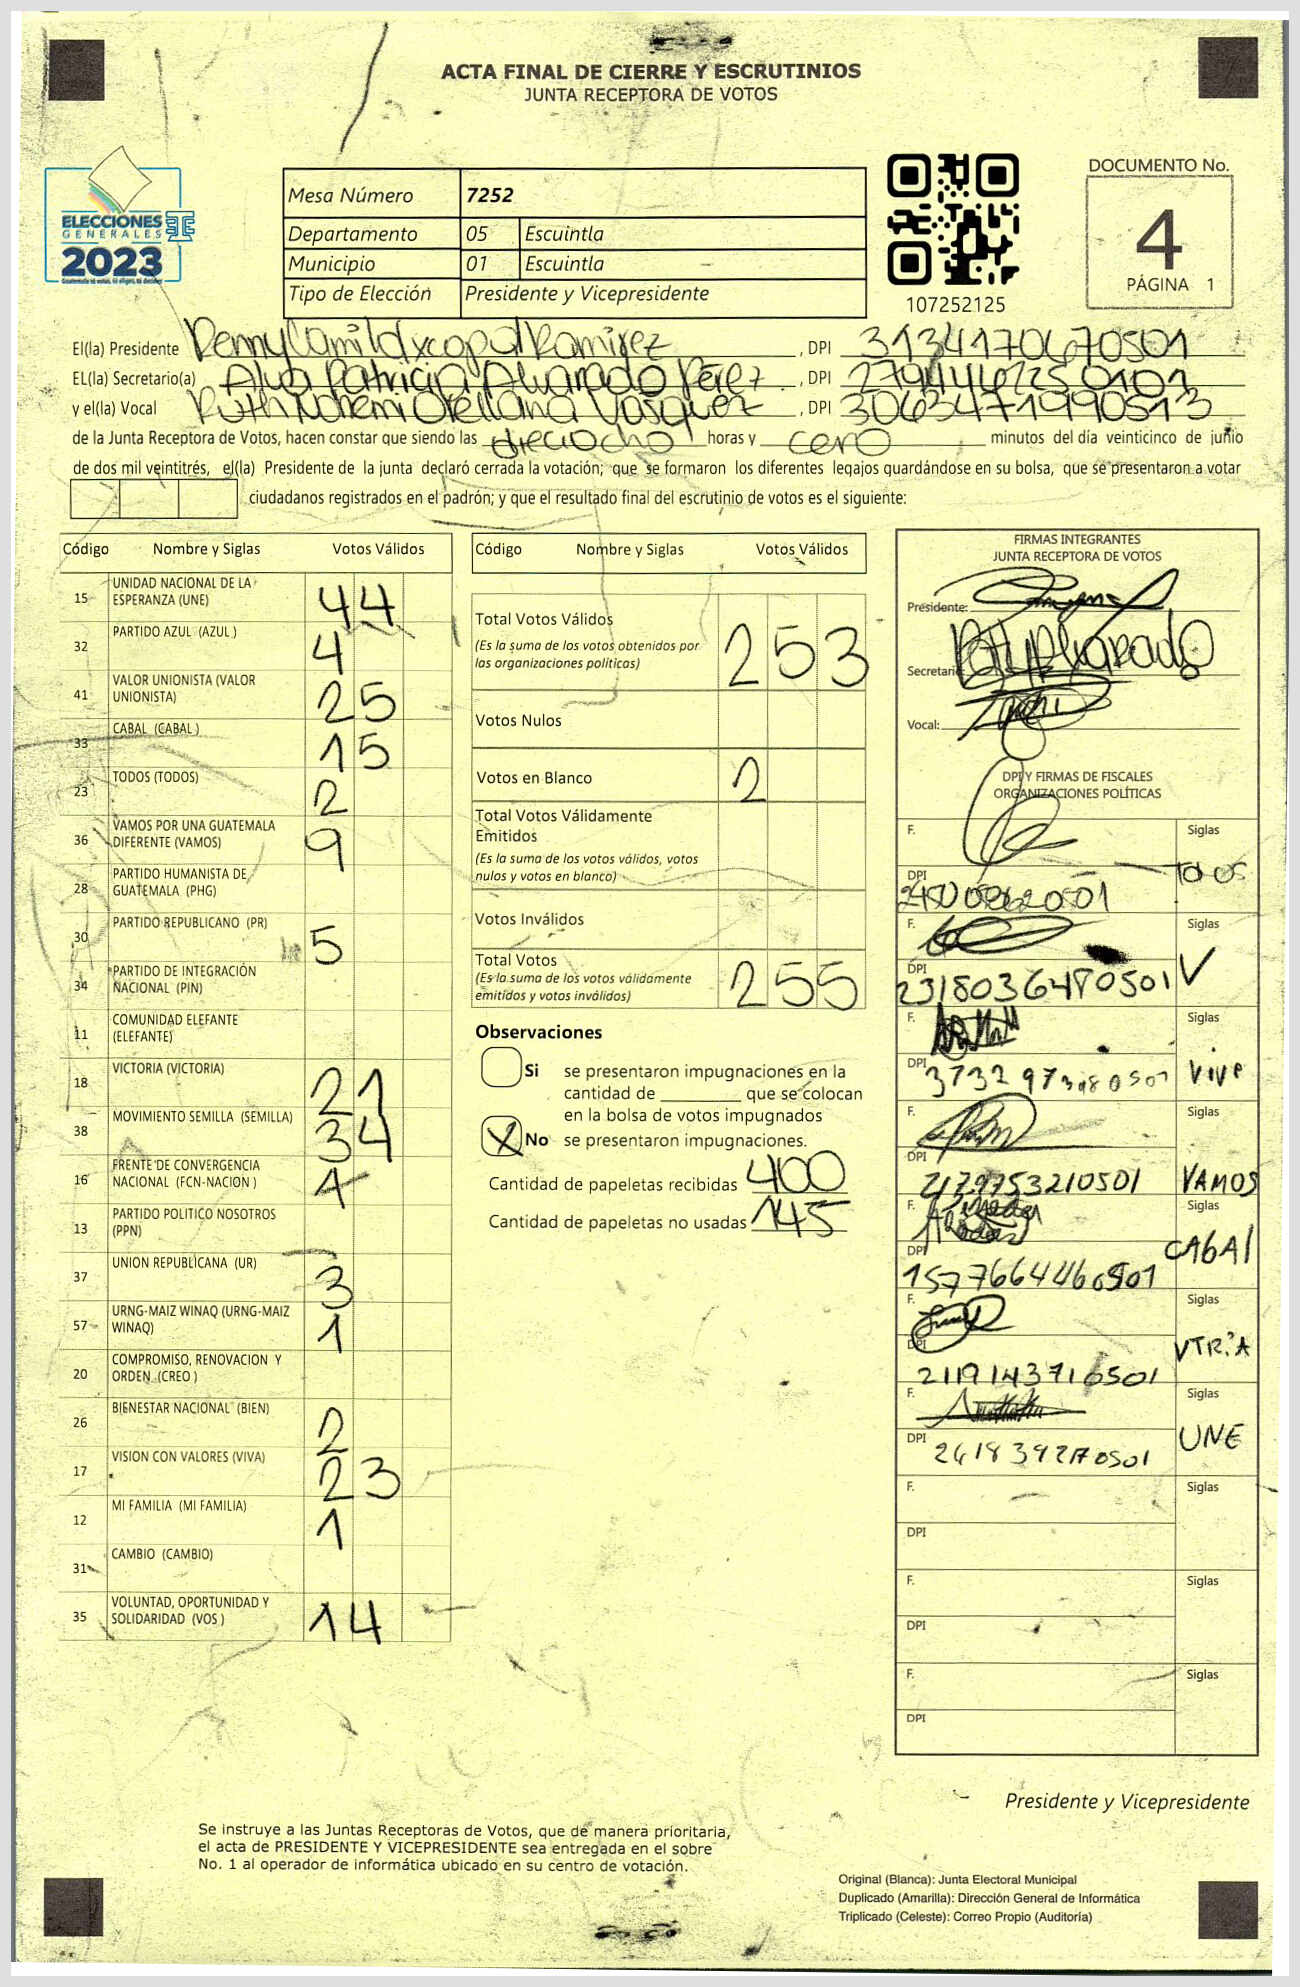 ACTA FINAL DE CIERRE Y ESCRUTINIOS
JUNTA RECEPTORA DE VOTOS
ELECCIONES
GENERALES
2023
Mesa Número 7252
Departamento 05 Escuintla
Municipio 01 Escuintla
Tipo de Elección Presidente y Vicepresidente
107252125
DOCUMENTO No.
4
PÁGINA 1
El(la) Presidente Ramirez, DPI 3134170670501
EL(la) Secretario(a) Alva Patricia Alvarado Pérez, DPI
y el(la) Vocal Ruth Nohemi Orellana Vasquez, DPI 3063471990513
de la Junta Receptora de Votos, hacen constar que siendo las dieciocho horas y cero minutos del día veinticinco de junio
de dos mil veintitrés, el(la) Presidente de la junta declaró cerrada la votación; que se formaron los diferentes legajos guardándose en su bolsa, que se presentaron a votar
ciudadanos registrados en el padrón; y que el resultado final del escrutinio de votos es el siguiente:
Código Nombre y Siglas Votos Válidos
15 UNIDAD NACIONAL DE LA ESPERANZA (UNE) 44
32 PARTIDO AZUL (AZUL ) 4
41 VALOR UNIONISTA (VALOR UNIONISTA) 25
33 CABAL (CABAL ) 15
23 TODOS (TODOS) 2
36 VAMOS POR UNA GUATEMALA DIFERENTE (VAMOS) 9
28 PARTIDO HUMANISTA DE GUATEMALA (PHG)
30 PARTIDO REPUBLICANO (PR) 5
34 PARTIDO DE INTEGRACIÓN NACIONAL (PIN)
11 COMUNIDAD ELEFANTE (ELEFANTE)
18 VICTORIA (VICTORIA) 21
38 MOVIMIENTO SEMILLA (SEMILLA) 34
16 FRENTE DE CONVERGENCIA NACIONAL (FCN-NACION ) 4
13 PARTIDO POLITICO NOSOTROS (PPN)
37 UNION REPUBLICANA (UR) 3
57 URNG-MAIZ WINAQ (URNG-MAIZ WINAQ) 1
20 COMPROMISO, RENOVACION Y ORDEN (CREO )
26 BIENESTAR NACIONAL (BIEN) 2
17 VISION CON VALORES (VIVA) 23
12 MI FAMILIA (MI FAMILIA) 1
31 CAMBIO (CAMBIO)
35 VOLUNTAD, OPORTUNIDAD Y SOLIDARIDAD (VOS ) 14
Código Nombre y Siglas Votos Válidos
Total Votos Válidos 253
(Es la suma de los votos obtenidos por
las organizaciones políticas)
Votos Nulos
Votos en Blanco 2
Total Votos Válidamente
Emitidos
(Es la suma de los votos válidos, votos
nulos y votos en blanco)
Votos Inválidos
Total Votos 255
(Es la suma de los votos válidamente
emitidos y votos inválidos)
Observaciones
Si se presentaron impugnaciones en la
cantidad de ________ que se colocan
en la bolsa de votos impugnados
X No se presentaron impugnaciones.
Cantidad de papeletas recibidas 400
Cantidad de papeletas no usadas 145
FIRMAS INTEGRANTES
JUNTA RECEPTORA DE VOTOS
Presidente:
Secretario:
Vocal:
DPI Y FIRMAS DE FISCALES
ORGANIZACIONES POLÍTICAS
F. Siglas
DPI Todos
F. Siglas
DPI 2318036480501 V
F. Siglas
DPI Viva
F. Siglas
DPI 2179753210501 VAMOS
F. Siglas
DPI 1577664460501 CAbAl
F. Siglas
DPI 2119143716501
F. Siglas
DPI UNE
F. Siglas
DPI
F. Siglas
DPI
F. Siglas
DPI
Presidente y Vicepresidente
Se instruye a las Juntas Receptoras de Votos, que de manera prioritaria,
el acta de PRESIDENTE Y VICEPRESIDENTE sea entregada en el sobre
No. 1 al operador de informática ubicado en su centro de votación.
Original (Blanca): Junta Electoral Municipal
Duplicado (Amarilla): Dirección General de Informática
Triplicado (Celeste): Correo Propio (Auditoría)